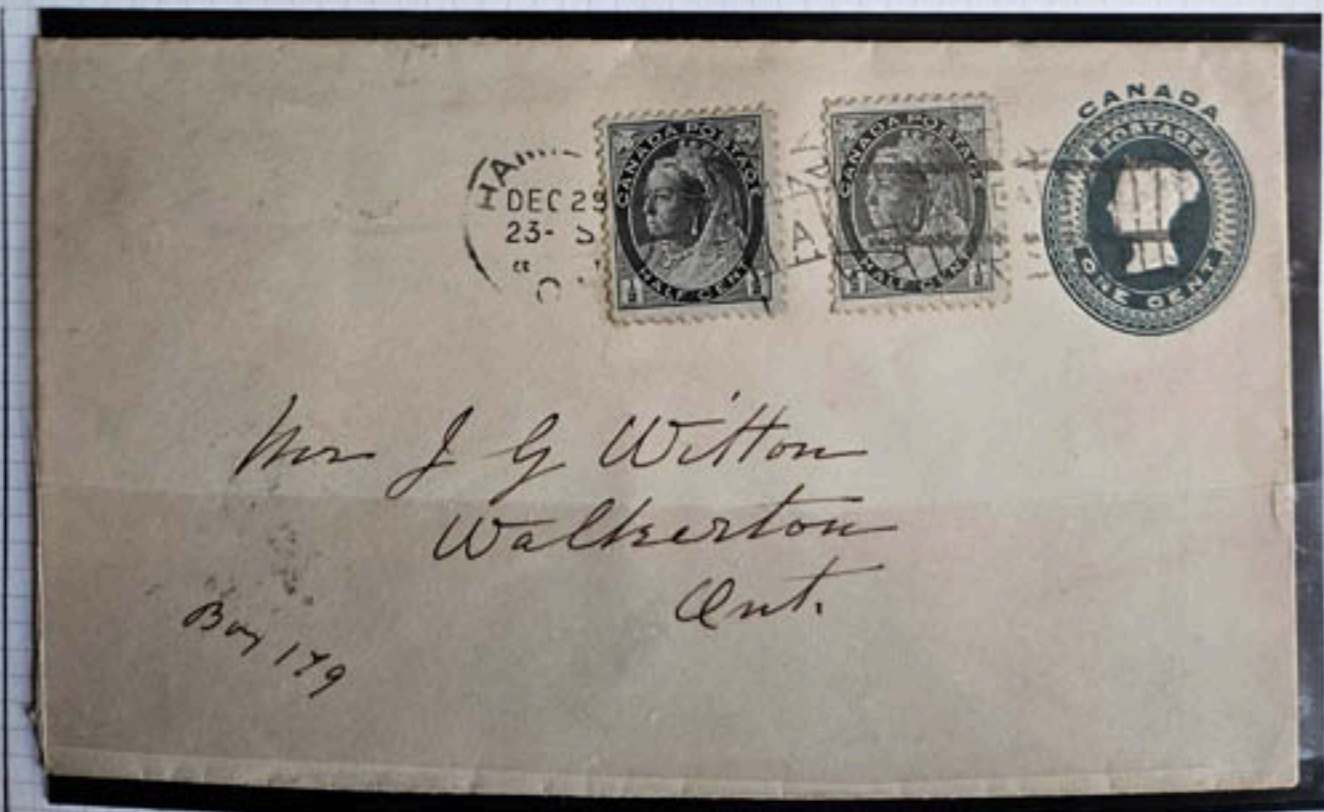 CANADA
POSTAGE
ONE CENT
CANADA POSTAGE
HALF CENT
½ ½
CANADA POSTAGE
HALF CENT
½ ½
DEC 29
23-
Mr J G Witton
Walkerton
Ont.
Box 179